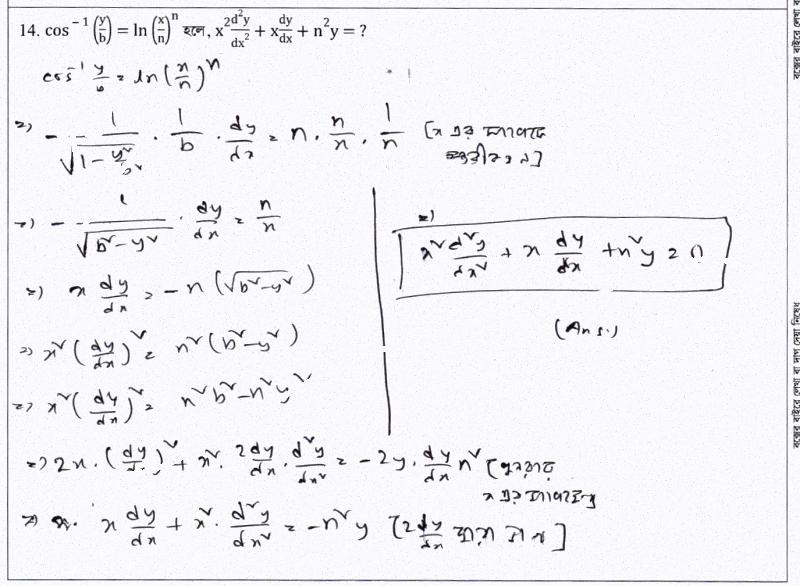 14. cos⁻¹(y/b) = ln(x/n)ⁿ হলে, x² d²y/dx² + x dy/dx + n²y = ?
cos⁻¹ y/b = ln(x/n)ⁿ
=) - 1/√(1 - y²/b²) · 1/b · dy/dx = n · n/x · 1/n [x এর সাপেক্ষে
=) - 1/√(b² - y²) · dy/dx = n/x
=) x dy/dx = -n(√(b² - y²))
=) x²(dy/dx)² = n²(b² - y²)
=) x²(dy/dx)² = n²b² - n²y²
=) 2x · (dy/dx)² + x² · 2dy/dx · d²y/dx² = -2y · dy/dx n² [পুনরায়
x এর সাপেক্ষে
=) x dy/dx + x² · d²y/dx² = -n²y [2dy/dx দ্বারা ভাগ]
=)
x² d²y/dx² + x dy/dx + n²y = 0
(Ans.)